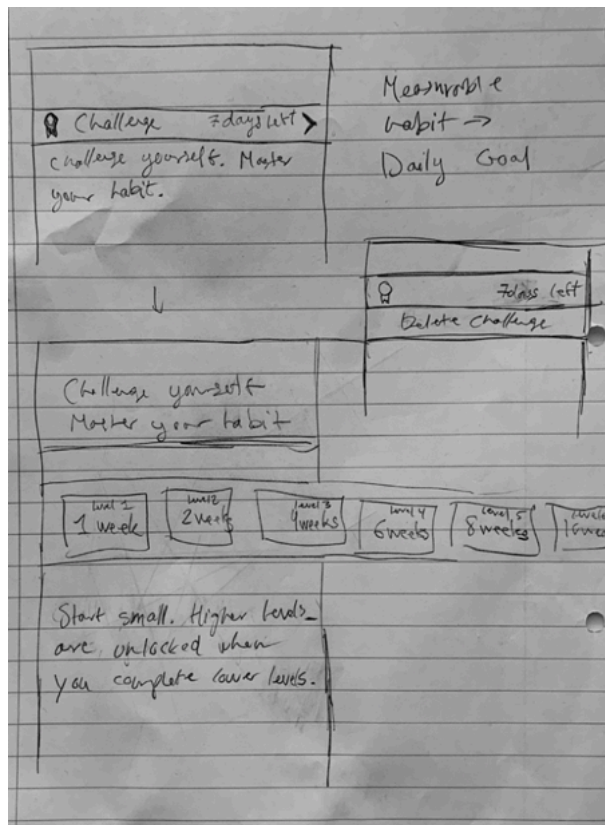 Challenge 7 days left >
Challenge yourself. Master
your habit.
Measurable
habit →
Daily Goal
7 days left
Delete Challenge
Challenge yourself
Master your habit
Level 1
1 week
Level 2
2 weeks
Level 3
4 weeks
Level 4
6 weeks
Level 5
8 weeks
Level
Start small. Higher levels
are unlocked when
you complete lower levels.